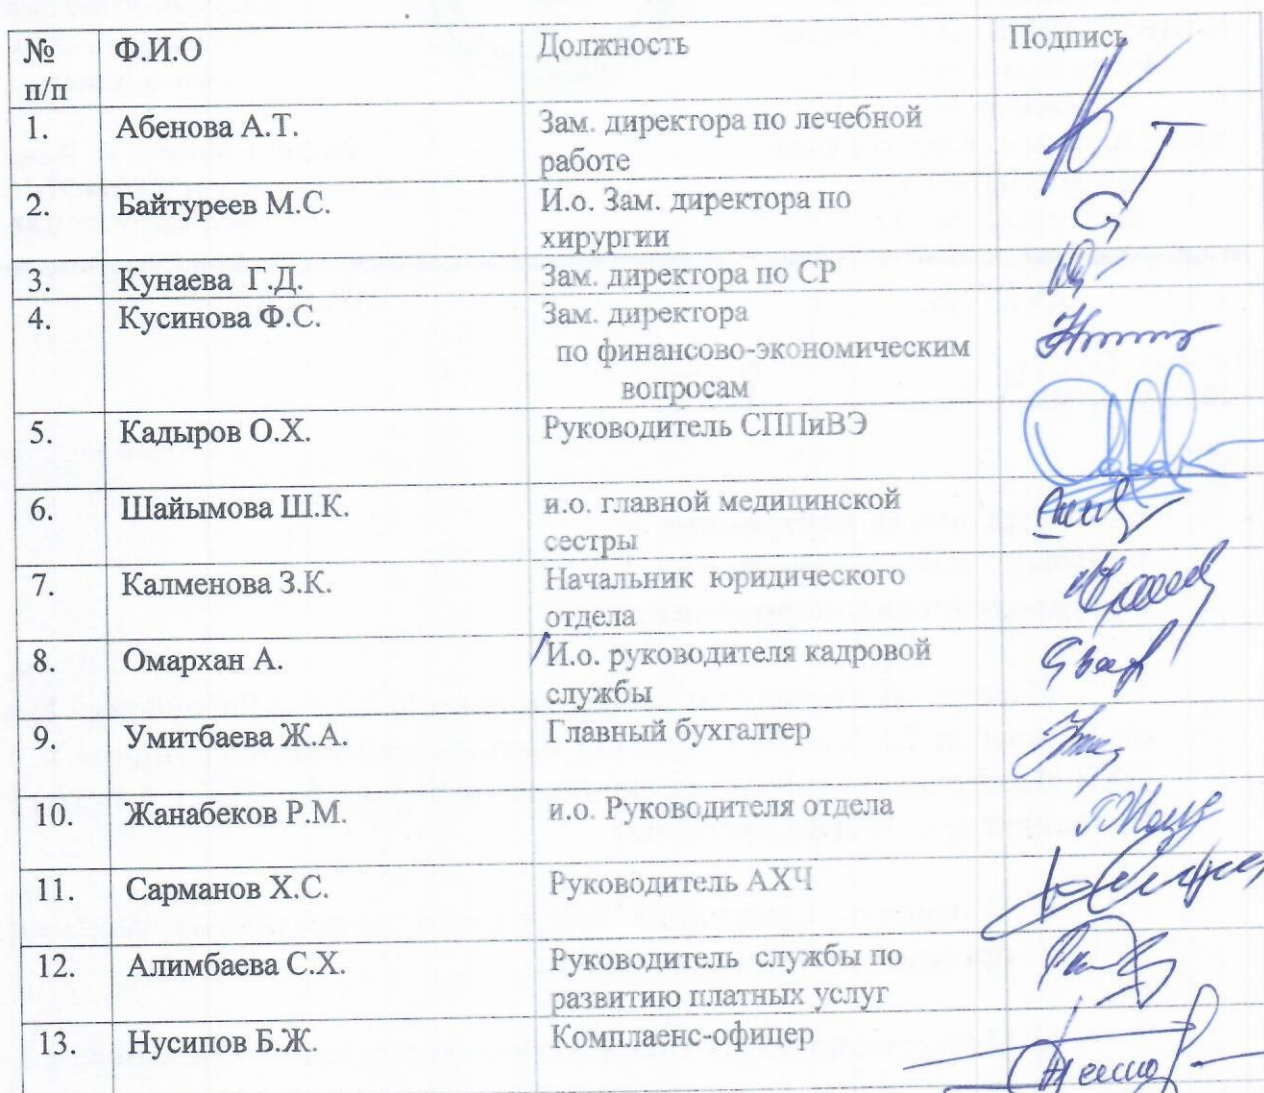 № Ф.И.О Должность Подпись
п/п
1. Абенова А.Т. Зам. директора по лечебной
работе
2. Байтуреев М.С. И.о. Зам. директора по
хирургии
3. Кунаева Г.Д. Зам. директора по СР
4. Кусинова Ф.С. Зам. директора
по финансово-экономическим
вопросам
5. Кадыров О.Х. Руководитель СППиВЭ
6. Шайымова Ш.К. и.о. главной медицинской
сестры
7. Калменова З.К. Начальник юридического
отдела
8. Омархан А. И.о. руководителя кадровой
службы
9. Умитбаева Ж.А. Главный бухгалтер
10. Жанабеков Р.М. и.о. Руководителя отдела
11. Сарманов Х.С. Руководитель АХЧ
12. Алимбаева С.Х. Руководитель службы по
развитию платных услуг
13. Нусипов Б.Ж. Комплаенс-офицер